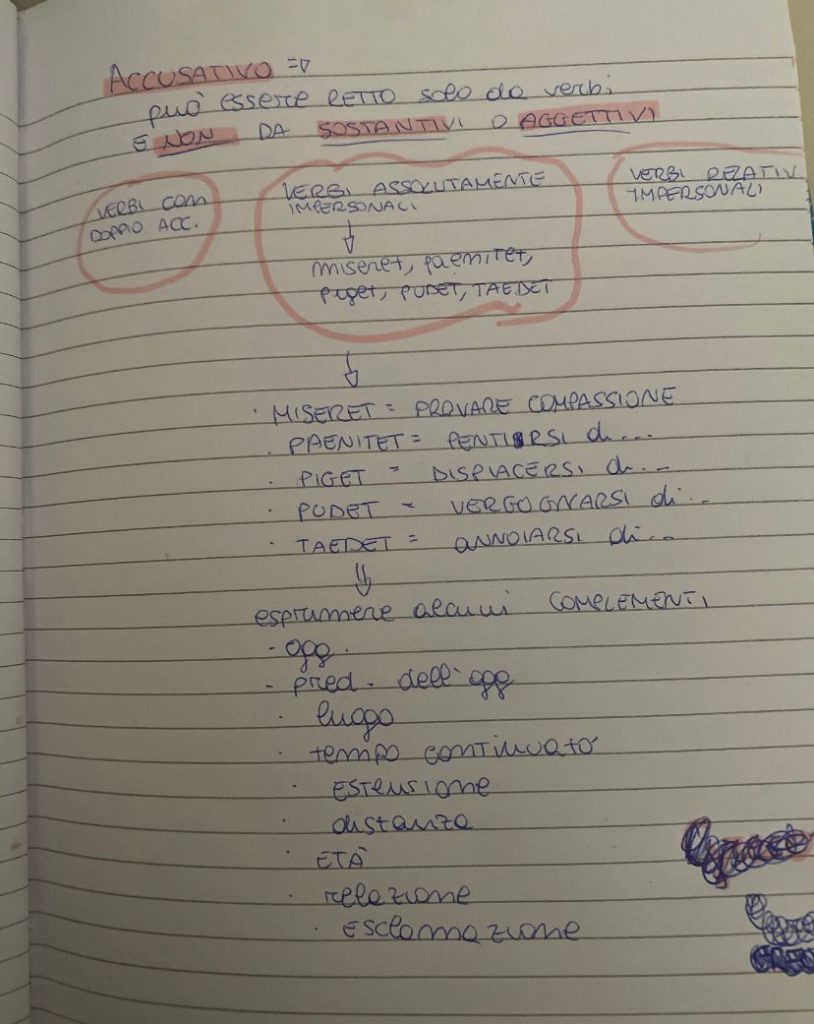 ACCUSATIVO =>
può essere RETTO solo da verbi
E NON DA SOSTANTIVI O AGGETTIVI
VERBI COM
DOPPIO ACC.
VERBI ASSOLUTAMENTE
IMPERSONALI
miseret, paenitet,
piget, PUDET, TAEDET
VERBI RELATIV
IMPERSONALI
· MISERET = PROVARE COMPASSIONE
· PAENITET = PENTIRSI di...
· PIGET = DISPIACERSI di...
· PUDET = VERGOGNARSI di...
· TAEDET = ANNOIARSI di...
esprimere alcuni COMPLEMENTI
- ogg.
- pred. dell'ogg
· luogo
· tempo continuato
· ESTENSIONE
· distanza
· ETÀ
· relazione
· Esclamazione